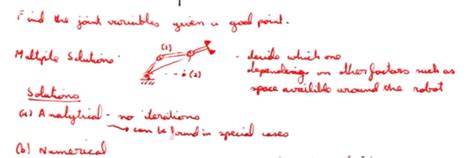 Find the joint variables given a goal point.
Multiple Solutions (1) (2) - decide which one
depending on other factors such as
space availible around the robot
Solutions
(a) Analytical - no iterations
→ can be found in special cases
(b) Numerical